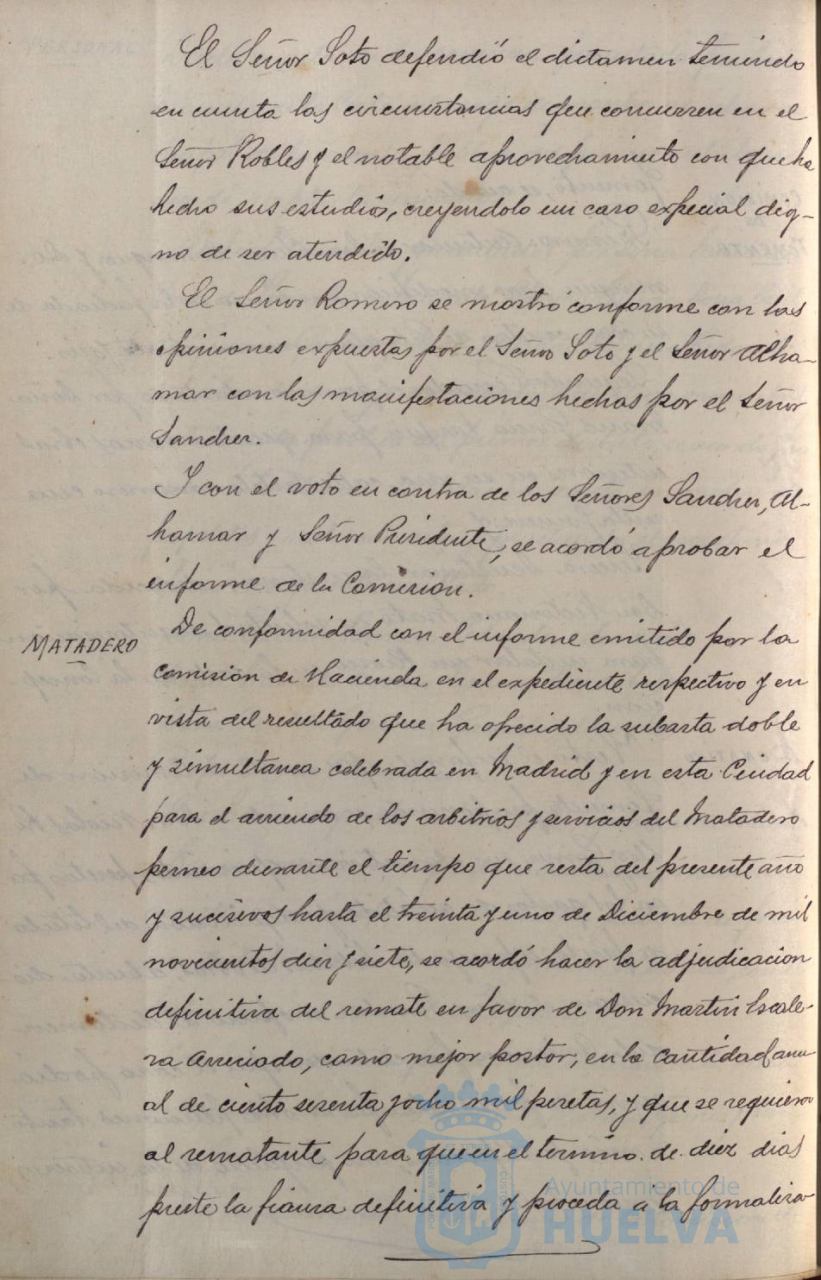 El Señor Soto defendió el dictamen teniendo
en cuenta las circunstancias que concurren en el
Señor Robles y el notable aprovechamiento con que ha
hecho sus estudios, creyendolo un caso especial dig-
no de ser atendido.
El Señor Romero se mostró conforme con las
opiniones expuestas por el Señor Soto y el Señor Alha-
mar con las manifestaciones hechas por el Señor
Sanchez.
Y con el voto en contra de los Señores Sanchez, Al-
hamar y Señor Presidente, se acordó aprobar el
informe de la Comision.
MATADERO
De conformidad con el informe emitido por la
Comisión de Hacienda en el expediente respectivo y en
vista del resultado que ha ofrecido la subasta doble
y simultanea celebrada en Madrid y en esta Ciudad
para el arriendo de los arbitrios y servicios del Matadero
perneo durante el tiempo que resta del presente año
y sucesivos hasta el treinta y uno de Diciembre de mil
novecientos diez y siete, se acordó hacer la adjudicacion
definitiva del remate en favor de Don Martin Escale-
ra Arreciado, como mejor postor, en la cantidad anu-
al de ciento sesenta y ocho mil pesetas, y que se requiera
al rematante para que en el termino de diez dias
preste la fianza definitiva y proceda á la formaliza-
Ayuntamiento de
HUELVA